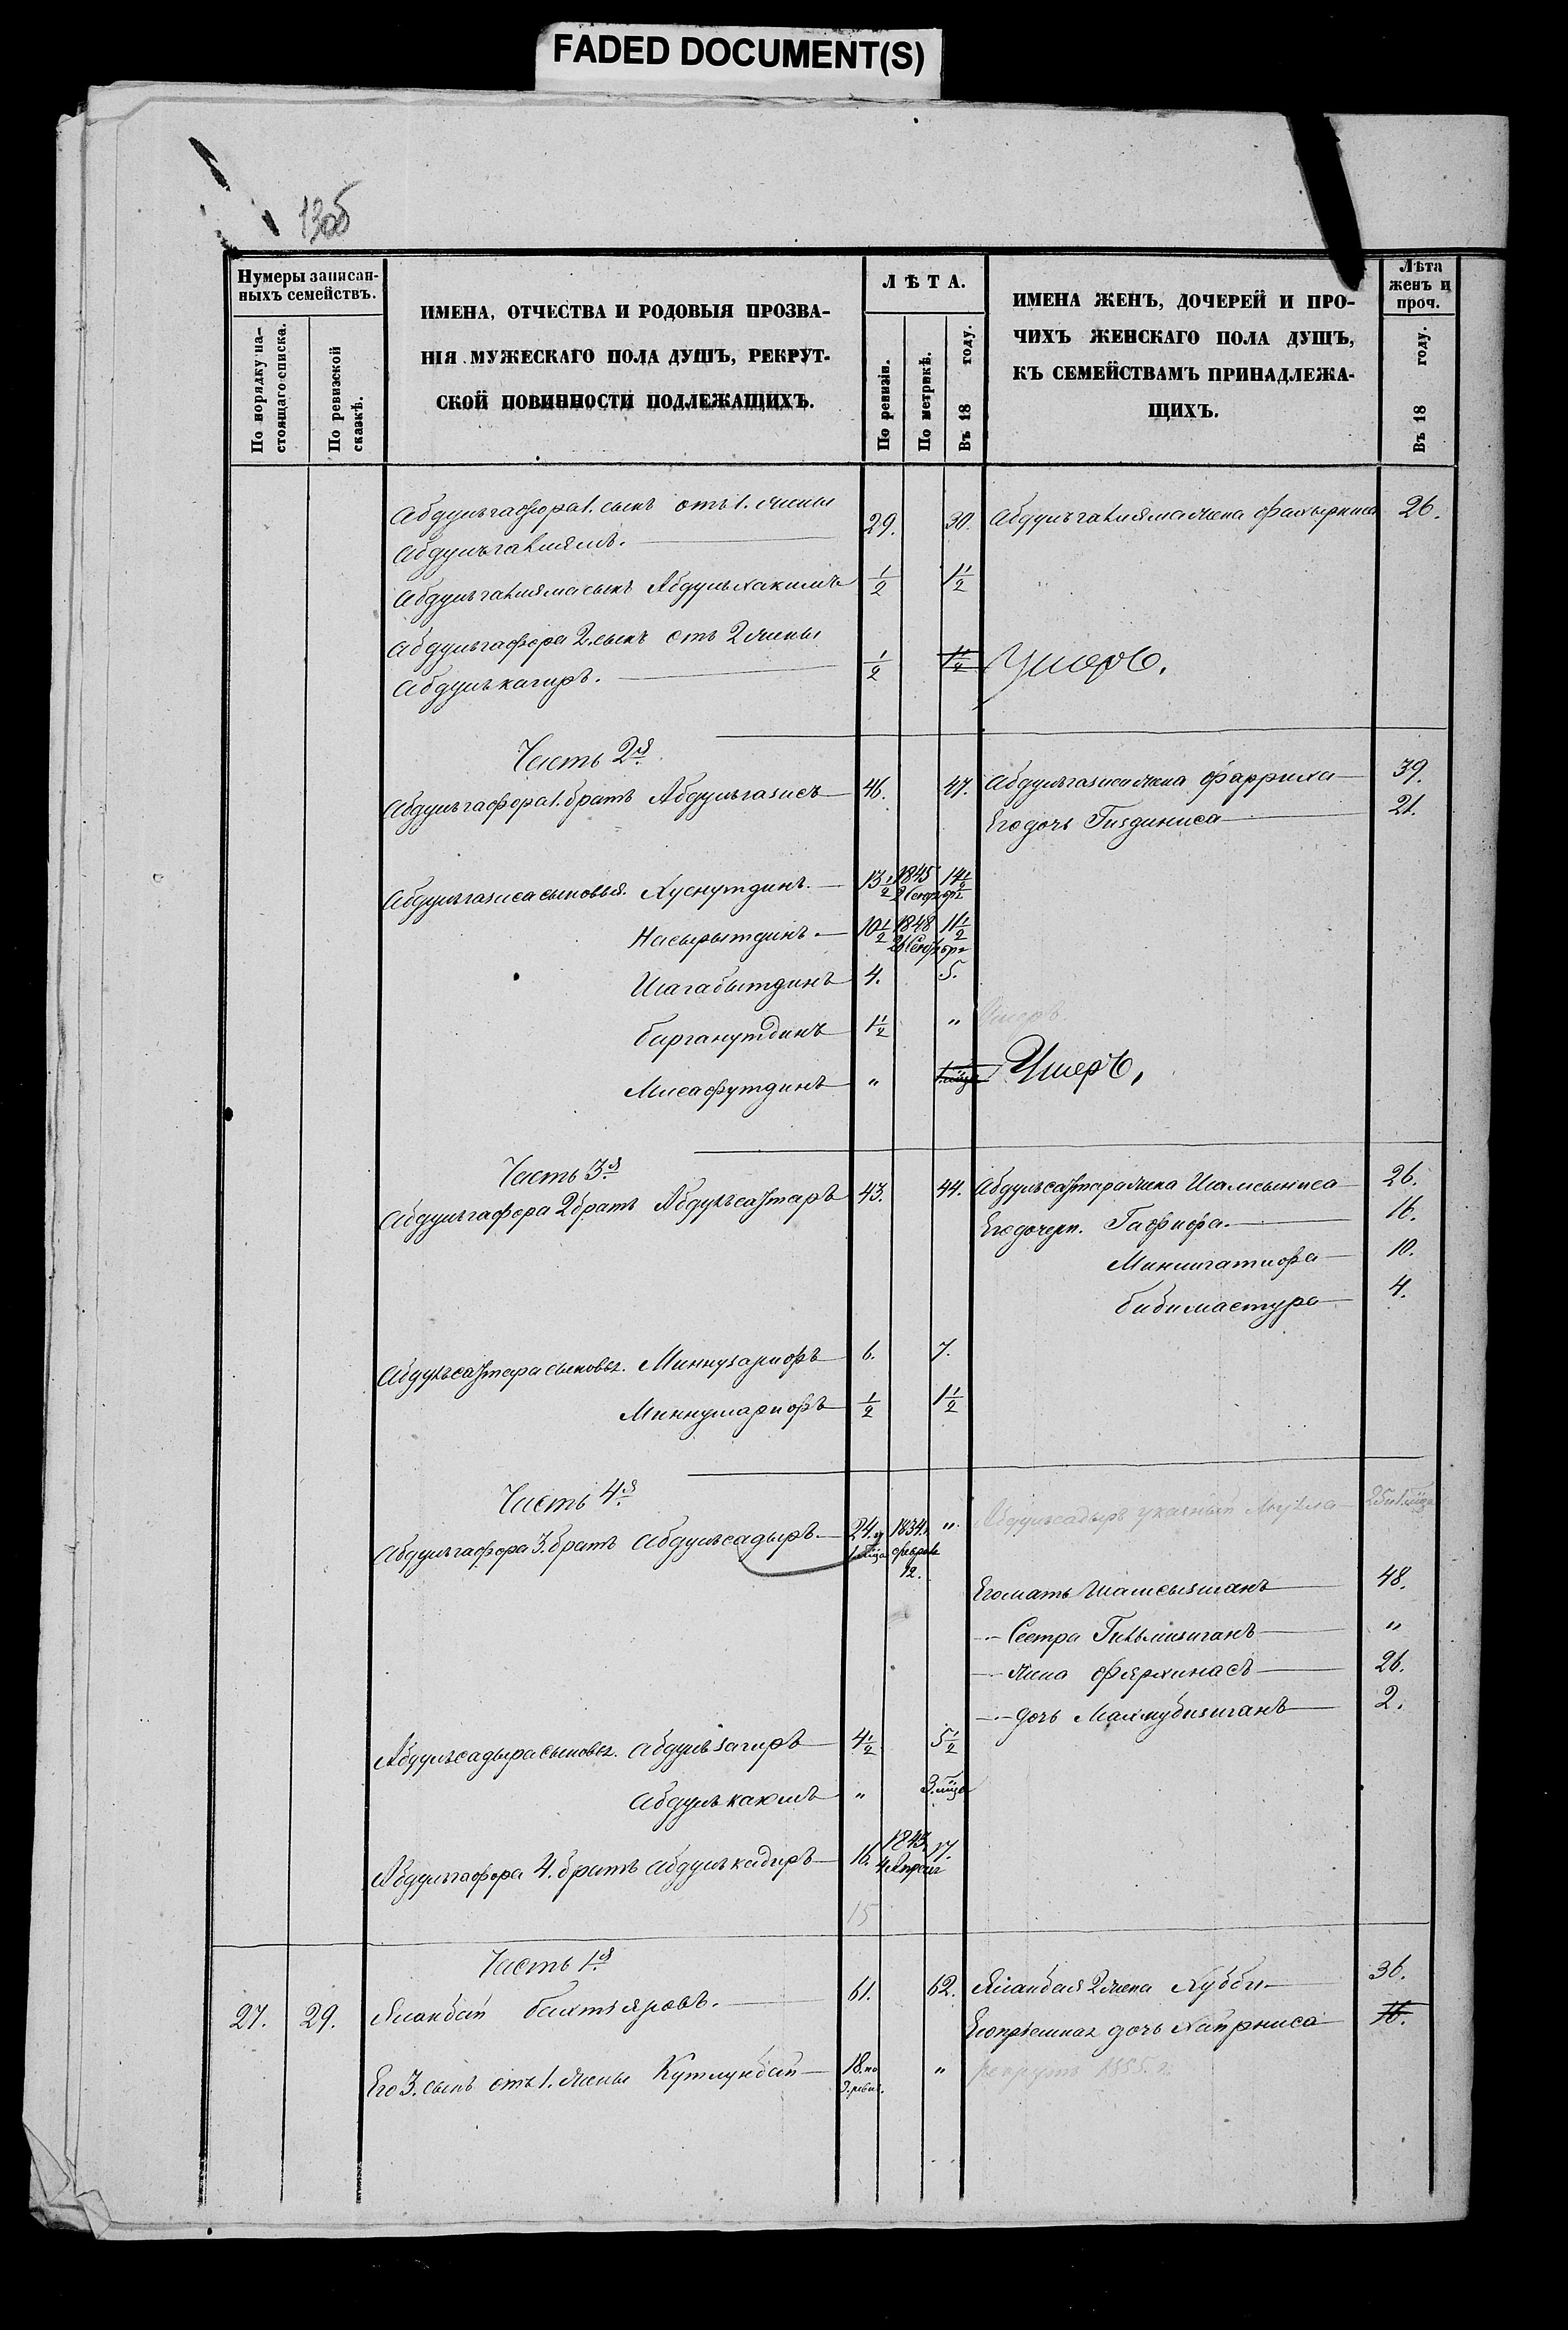 FADED DOCUMENT(S)
130б
Нумеры записан-
ныхъ семействъ.
По порядку на-
стоящаго списка.
По ревизской
сказкѣ.
ИМЕНА, ОТЧЕСТВА И РОДОВЫЯ ПРОЗВА-
НІЯ МУЖЕСКАГО ПОЛА ДУШЪ, РЕКРУТ-
СКОЙ ПОВИННОСТИ ПОДЛЕЖАЩИХЪ.
ЛѢТА.
По ревизіи.
По метрикѣ.
Въ 18 году.
ИМЕНА ЖЕНЪ, ДОЧЕРЕЙ И ПРО-
ЧИХЪ ЖЕНСКАГО ПОЛА ДУШЪ,
КЪ СЕМЕЙСТВАМЪ ПРИНАДЛЕЖА-
ЩИХЪ.
Лѣта
женъ и
проч.
Въ 18 году.
Абдулгафора 1. сынъ отъ 1. жены
Абдулъгаллямъ. 29. 30. Абдулъгаллямажена Фахырниса 26.
Абдулъгаллямасынъ Абдулъхакимъ 1/2 1 1/2
Абдулгафора 2. сынъ отъ 2 жены
Абдулъкагиръ. 1/2 1 1/2 Умеръ.
Часть 2я
Абдулгафора 1. братъ Абдулгазисъ 46. 47. Абдулгазисажена Фарриха 39.
Его дочь Гиздиниса 21.
Абдулгазиса сыновья. Хуснутдинъ. 13 1/2 1845 2 Сентября 14 1/2
Насырытдинъ. 10 1/2 1848 26 Сентября 11 1/2
Шагабытдинъ 4. 5.
Бурганутдинъ 1 1/2 " Умеръ.
Мисафутдинъ " Умеръ,
Часть 3я
Абдулгафора 2 братъ Абдулъсаттаръ 43. 44. Абдулъсаттаражена Шамсыниса 26.
Его дочери. Гафифа. 16.
Миннигатифа 10.
Бибимастура 4.
Абдулъсаттара сыновья. Миннугарифъ 6. 7.
Миннушарифъ 1/2 1 1/2
Часть 4я
Абдулгафора 3. братъ Абдулсадыръ. 24. и 1834. " Абдулсадыръ указный Мулла
февраля
12.
Его мать Шамсызиганъ 48.
Сестра Гильмизиганъ "
Жена Фярхинасъ 26.
дочь Махмубизиганъ 2.
Абдулсадыра сыновья. Абдулзагиръ 4 1/2 5 1/2
Абдулъкаюмъ " 3. мѣся
Абдулгафора 4. братъ Абдулкадыръ 16. 1843 4 Апреля 17.
15
Часть 1я
27. 29. Ямонбай Бахтияровъ. 61. 62. Яманбая 2 жена Хубби 36.
Его пріемная дочь Хайрниса 16.
Его 3. сынъ отъ 1. жены Кутлумбай 18. по " рекрутъ 1855. г.
9. ревиз.